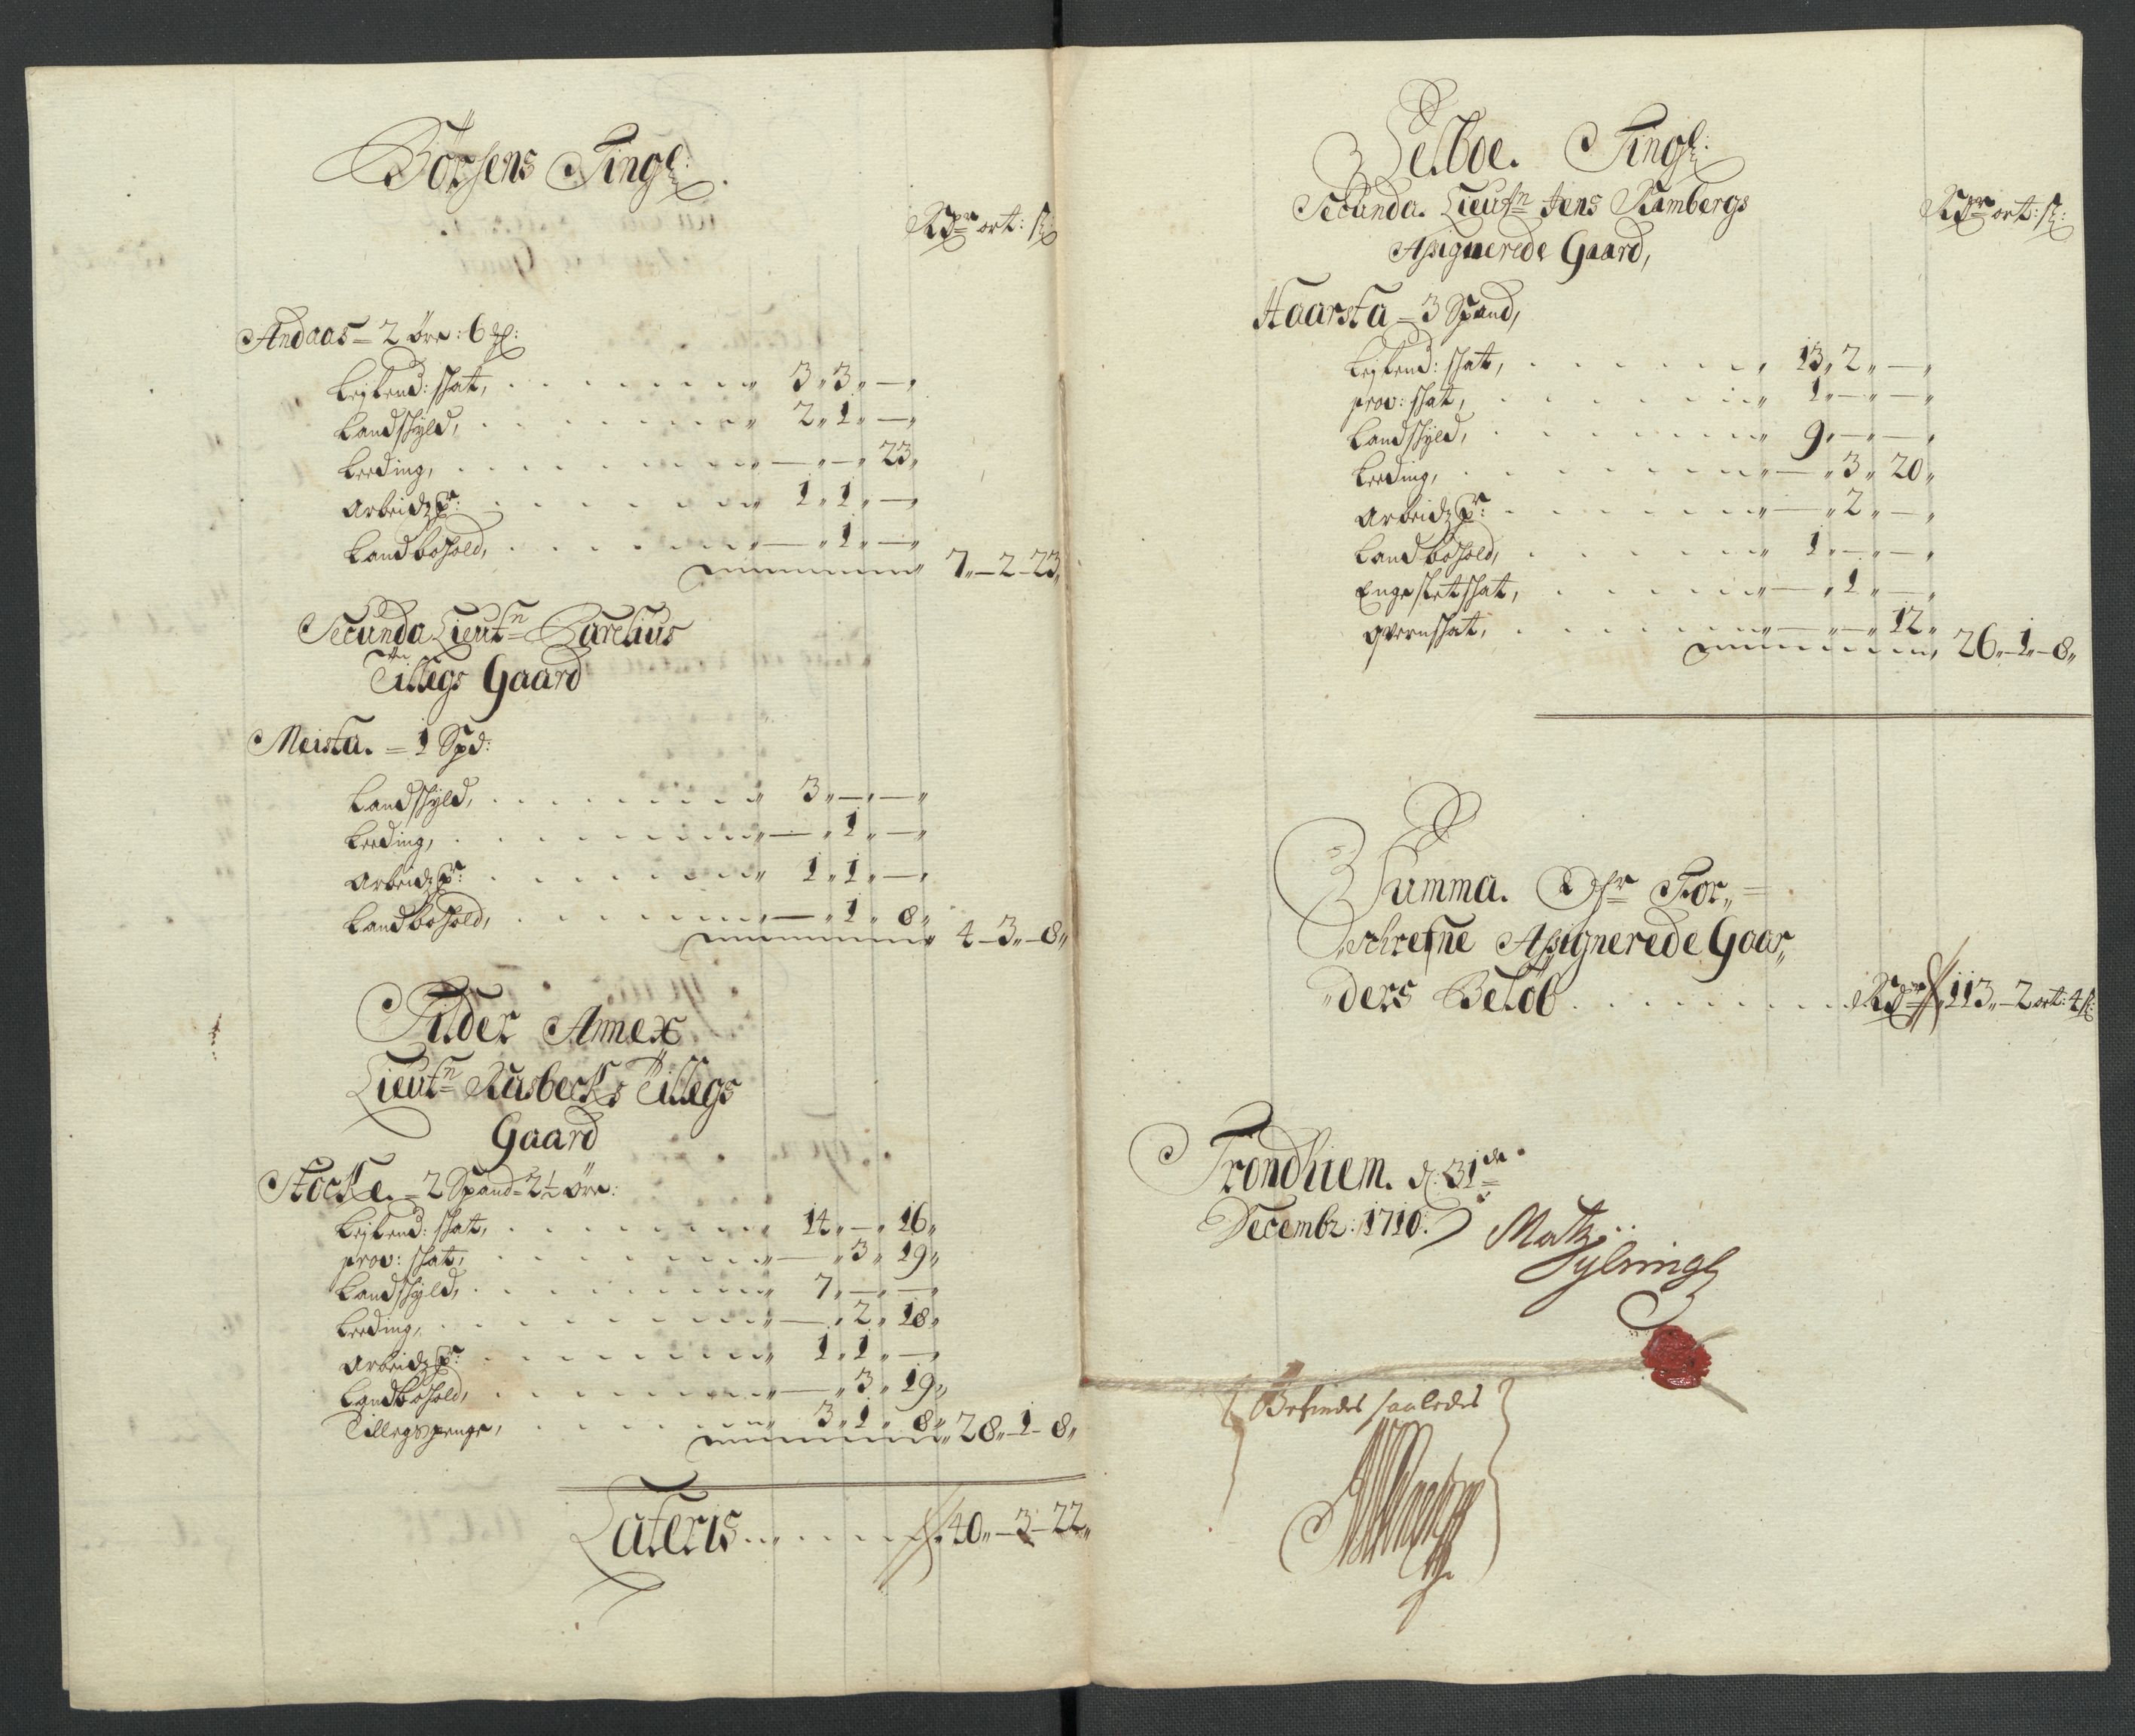 Börsens Tingl:
Rdr ort: s:
Andaas = 2 öre: 6 :
Leylend: skat, 3 „ 3 „ — „
Landskyld, 2 „ 1 „ — „
Leeding, — „ — „ 23 „
Arbeidzp: 1 „ 1 „ — „
Landbohold, — „ 1 „ — „
7 „ — 2 — 23 „
Secunda Lieutn Carelius
Tillegs Gaard
Meista. = 1 Spd:
Landskyld, 3 „ — „ — „
Leeding, — „ 1 „ — „
Arbeidzp: 1 „ 1 „ — „
Landbohold, — „ 1 „ 8 „
4 — 3 „ — 8 „
Tilder Annex
Lieutn Rusbecks Tillegs
Gaard
Stocke. = 2 Spand = 2½ öre:
Leylend: skat, 14 „ — „ 16 „
prov: skat, — „ 3 „ 19 „
Landskyld, 7 „ — „ — „
Leeding, — „ 2 „ 18 „
Arbeidzp: 1 „ 1 „ — „
Landbohold, — „ 3 „ 19 „
Tillegspenge, 3 „ 1 „ 8 „
28 „ — 1 — 8 „
Lateris 40 „ — 3 — 22 „
Selboe. Tingl:
Secunda. Lieutn Jens Rambergs
Rdr ort: s:
Assignerede Gaard,
Haarsta = 3 Spand,
Leylend: skat, 13 „ 2 „ — „
prov: skat, 1 „ — „ — „
Landskyld, 9 „ — „ — „
Leeding, — „ 3 „ 20 „
Arbeidzp: — „ 2 „ — „
Landbohold, 1 „ — „ — „
Engesletskat, — „ 1 „ — „
Qvernskat, — „ — „ 12 „
26 „ — 1 „ — 8 „
Summa. Ofr For „ =
schrefne Assignerede Gaar „
„ ders Belöb Rdr 113 „ — 2 ort: 4 s:
Trondhiem. d: 31de
Decembr: 1710.
Matz:
Befindes saaledes